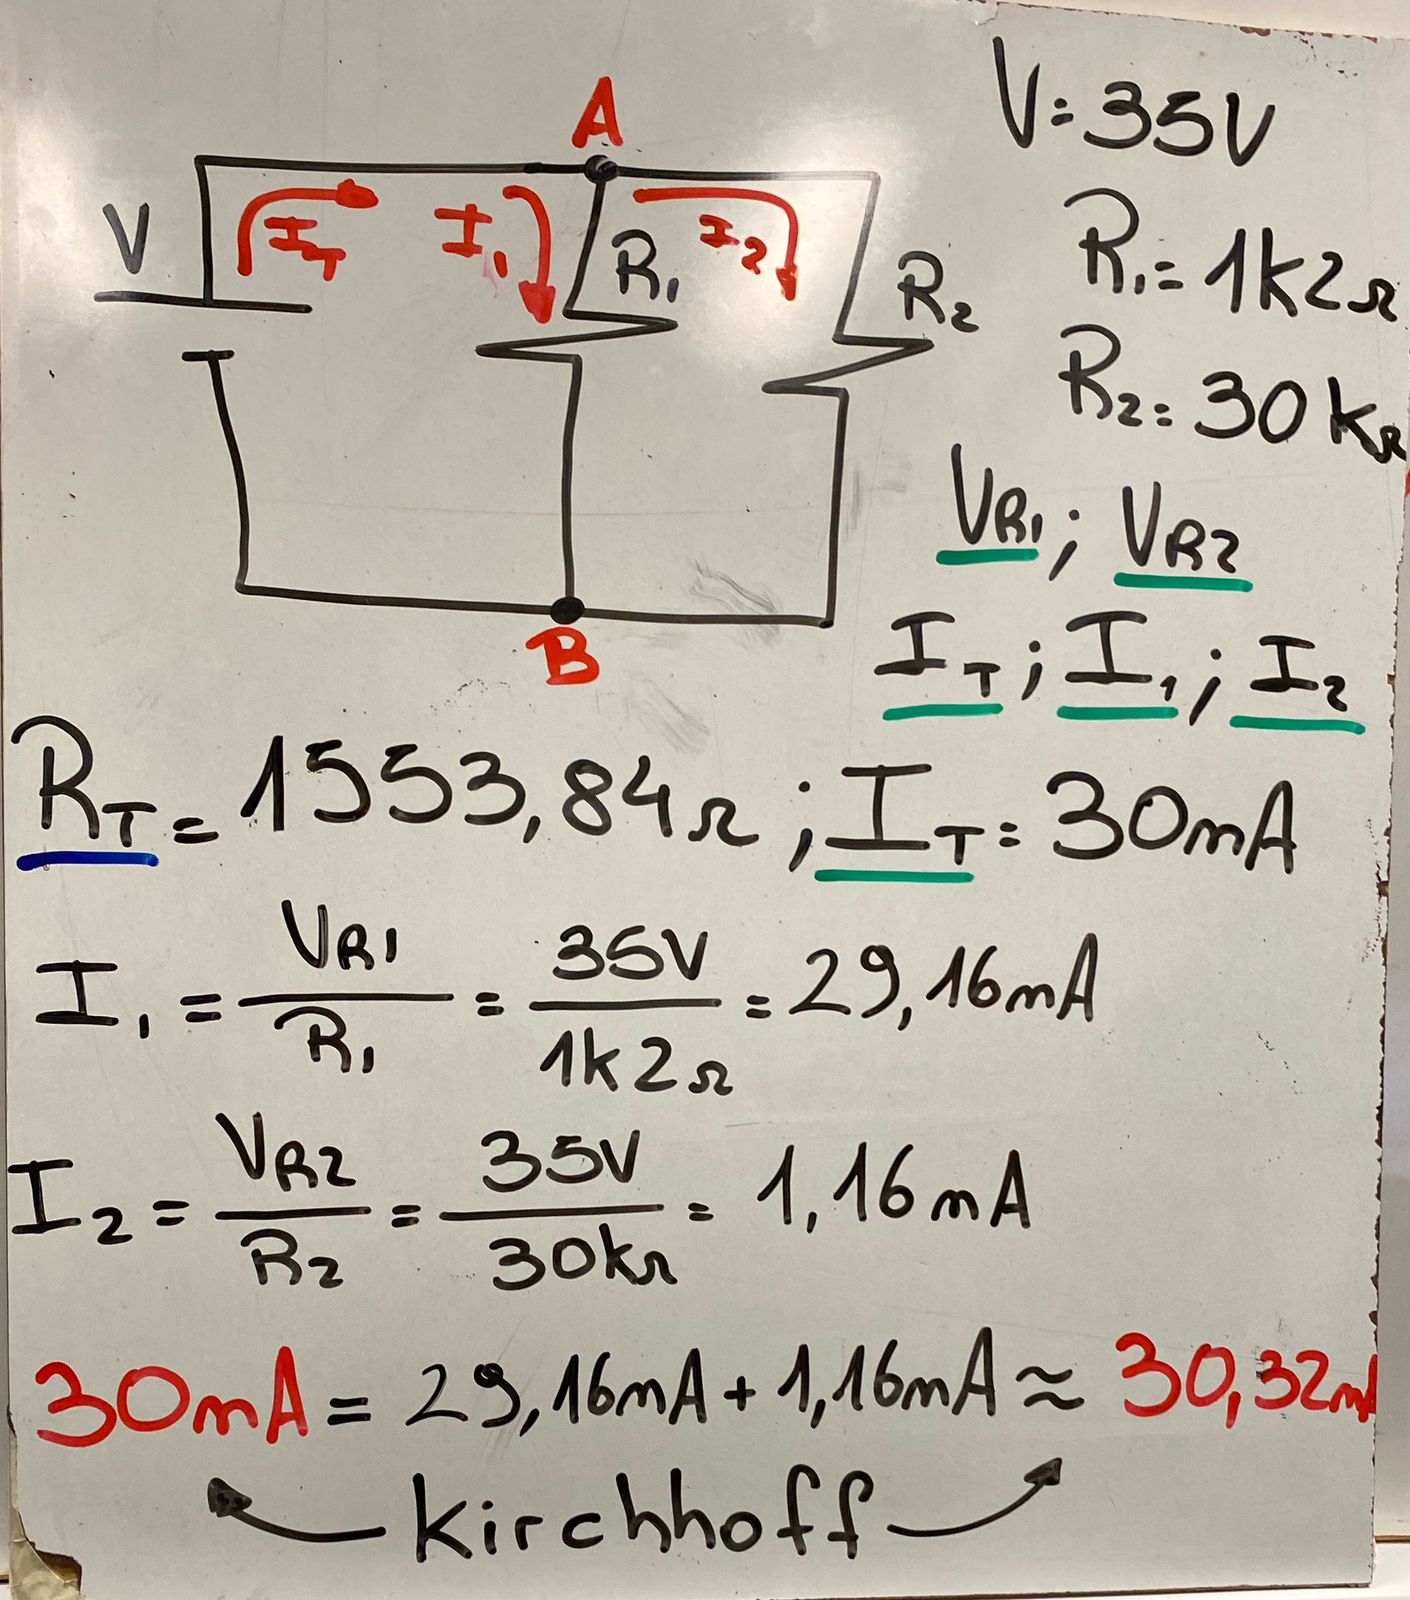 A
V = 35V
V
I_T
I₁
R₁
I₂
R₂
R₁ = 1k2Ω
R₂ = 30kΩ
VR1 ; VR2
B
I_T ; I₁ ; I₂
R_T = 1553,84Ω ; I_T = 30mA
I₁ = VR1 / R₁ = 35V / 1k2Ω = 29,16mA
I₂ = VR2 / R₂ = 35V / 30kΩ = 1,16mA
30mA = 29,16mA + 1,16mA ≈ 30,32mA
kirchhoff